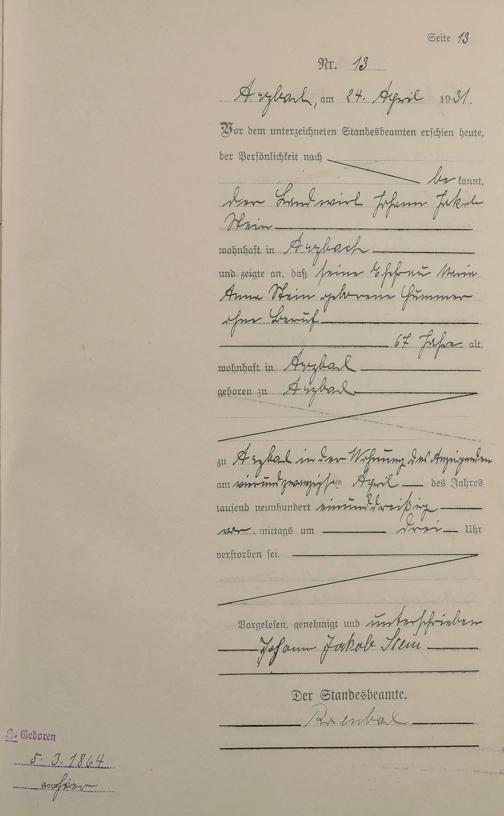 Seite 13
Nr. 13
Arzbach, am 24. April 1931.
Vor dem unterzeichneten Standesbeamten erschien heute,
der Persönlichkeit nach
be kannt,
der Landwirt Johann Jakob
Stein
wohnhaft in Arzbach
und zeigte an, daß seine Ehefrau Maria
Anna Stein geborene Hummer
ohne Beruf
67 Jahre alt,
wohnhaft in Arzbach
geboren zu Arzbach
zu Arzbach in der Wohnung des Anzeigenden
am vierundzwanzigsten April des Jahres
tausend neunhundert einunddreißig
vor mittags um drei Uhr
verstorben sei.
Vorgelesen, genehmigt und unterschrieben
Johann Jakob Stein
Der Standesbeamte.
Geboren
5. 3. 1864
hier